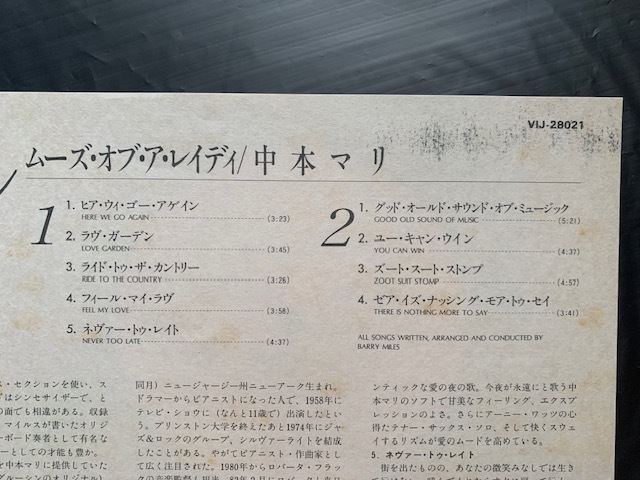 VIJ-28021
ムーズ・オブ・ア・レイディ/中本マリ
1
1. ヒア・ウィ・ゴー・アゲイン
HERE WE GO AGAIN (3:23)
2. ラヴ・ガーデン
LOVE GARDEN (3:45)
3. ライド・トゥ・ザ・カントリー
RIDE TO THE COUNTRY (3:26)
4. フィール・マイ・ラヴ
FEEL MY LOVE (3:58)
5. ネヴァー・トゥ・レイト
NEVER TOO LATE (4:37)
2
1. グッド・オールド・サウンド・オブ・ミュージック
GOOD OLD SOUND OF MUSIC (5:21)
2. ユー・キャン・ウイン
YOU CAN WIN (4:37)
3. ズート・スート・ストンプ
ZOOT SUIT STOMP (4:57)
4. ゼア・イズ・ナッシング・モア・トゥ・セイ
THERE IS NOTHING MORE TO SAY (3:41)
ALL SONGS WRITTEN, ARRANGED AND CONDUCTED BY
BARRY MILES
ス・セクションを使い、ス
はシンセサイザーで、と
の面でも相違がある。収録
マイルスが書いたオリジ
ーボード奏者として有名な
ーとしての才能も豊か。
を中本マリに提供していた
グルーシンのオリジナル)
同月) ニュージャージー州ニューアーク生まれ。
ドラマーからピアニストになった人で、1958年に
テレビ・ショウに (なんと11歳で) 出演したとい
う。プリンストン大学を終えたあと1974年にジャ
ズ&ロックのグループ、シルヴァーライトを結成
したことがある。やがてピアニスト・作曲家とし
て広く注目された。1980年からロバータ・フラッ
クの音楽監督も担当
ンティックな愛の夜の歌。今夜が永遠にと歌う中
本マリのソフトで甘美なフィーリング、エクスプ
レッションのよさ。さらにアーニー・ワッツの心
得たテナー・サックス・ソロ、そして快くスウェ
イするリズムが愛のムードを高めている。
5. ネヴァー・トゥ・レイト
街を出たものの、あなたの微笑みなしでは生き